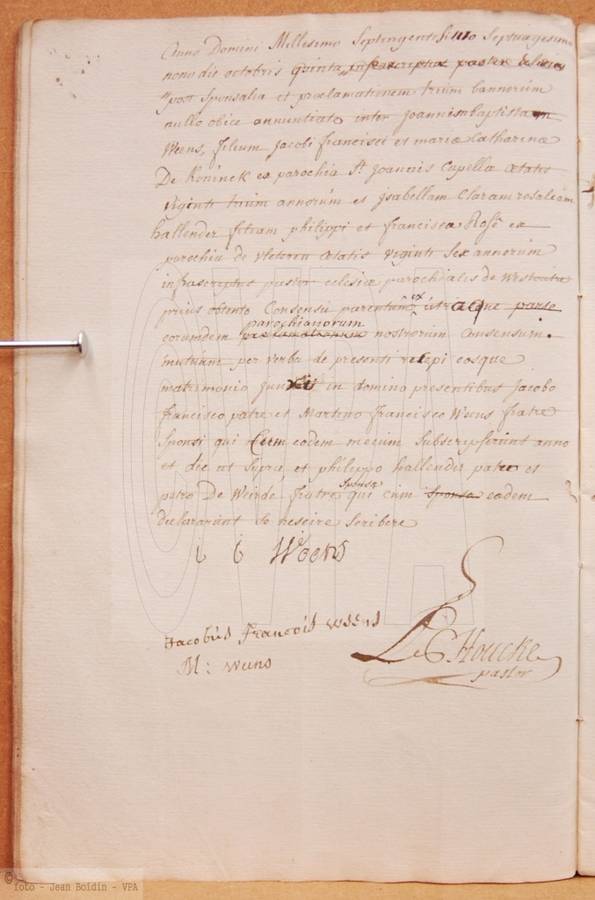 Anno Domini Millesimo Septingentesimo Septuagesimo
nono die octobris quinta infrascriptus pastor
post sponsalia et proclamationem trium bannorum
nullo obice annuntiato inter Joannembaptistam
Weens, filium Jacobi francisci et mariæ Catharinæ
De Koninck ex parochia St Joannis Capellæ ætatis
viginti trium annorum et jsabellam Claram rosaliam
hallender filiam philippi et franciscæ Rose ex
parochia de vleteren ætatis viginti sex annorum
infrascriptus pastor eclesiæ parochiales de Westoutre
prius obtento Consensu parentum ex utraque parte
eorumdem parochianorum nostrorum Consensum
mutuum per verba de presenti recepi eosque
matrimonio junxi in domino presentibus Jacobo
francisco patre et Martino francisco Weens fratre
sponsi qui eodem mecum subscripserunt anno
et die ut supra, et philippo hallender patre et
petro De Weirdé fratre sponsæ qui cum eodem
declararunt se nescire scribere
i b Weens
Jacobus francois weens
M: weens
L C Houcke
pastor
© foto - Jean Boidin - VPA